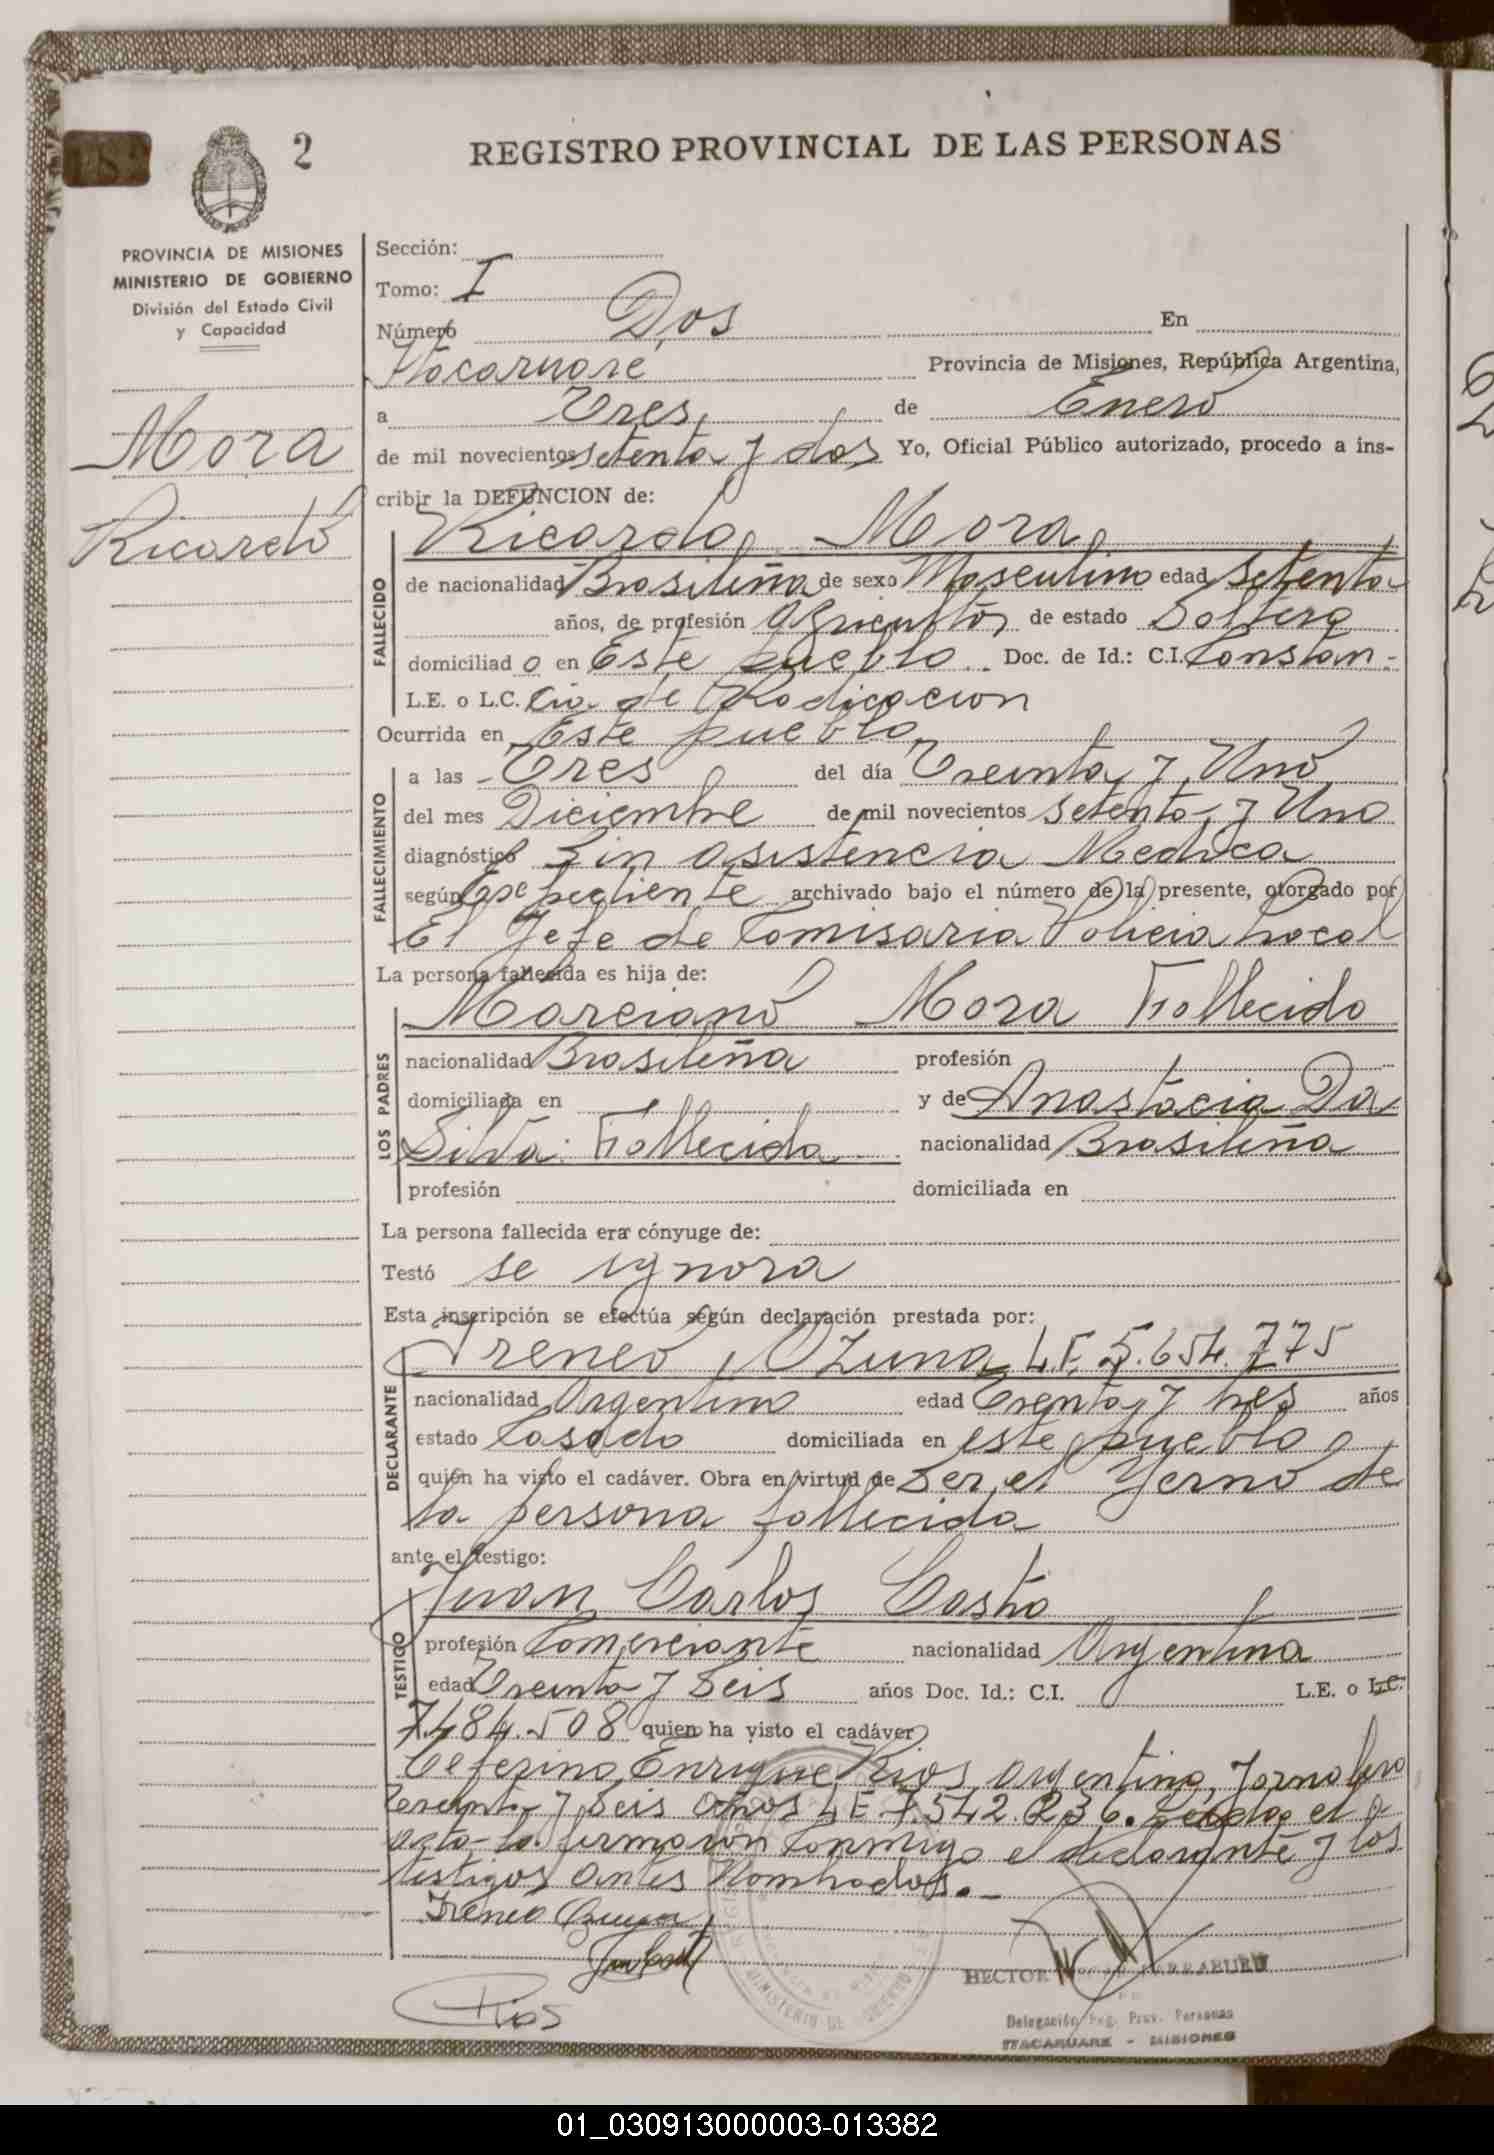 2
REGISTRO PROVINCIAL DE LAS PERSONAS
PROVINCIA DE MISIONES
MINISTERIO DE GOBIERNO
División del Estado Civil
y Capacidad
Mora
Ricardo
Sección:
Tomo: I
Número Dos En
Itacaruare Provincia de Misiones, República Argentina,
a Tres de Enero
de mil novecientos setenta y dos Yo, Oficial Público autorizado, procedo a ins-
cribir la DEFUNCION de:
FALLECIDO
Ricardo Mora
de nacionalidad Brasileña de sexo Masculino edad Setenta
años, de profesión Agricultor de estado Soltero
domiciliado en Este pueblo Doc. de Id.: C.I. Constan-
L.E. o L.C. cia de Radicacion
Ocurrida en Este pueblo
FALLECIMIENTO
a las Tres del día Treinta y Uno
del mes Diciembre de mil novecientos Setenta y Uno
diagnóstico Sin asistencia Medica
según Expediente archivado bajo el número de la presente, otorgado por
El Jefe de Comisaria Policia Local
La persona fallecida es hija de:
LOS PADRES
Marciano Mora Fallecido
nacionalidad Brasileña profesión
domiciliada en y de Anastacia Da
Silva Fallecida nacionalidad Brasileña
profesión domiciliada en
La persona fallecida era cónyuge de:
Testó se ignora
Esta inscripción se efectúa según declaración prestada por:
DECLARANTE
Ireneo Ozuna L.E. 5.654.775
nacionalidad Argentino edad Treinta y tres años
estado Casado domiciliada en este pueblo
quién ha visto el cadáver. Obra en virtud de Ser el Yerno de
la persona fallecida
ante el testigo:
TESTIGO
Juan Carlos Castro
profesión Comerciante nacionalidad Argentina
edad Treinta y Seis años Doc. Id.: C.I. L.E. o L.C.
7.484.508 quien ha visto el cadáver
Ceferino Enrique Rios, argentino, Jornalero
Treinta y Seis años LE 7.542.236. Leida el
acta la firmaron conmigo el declarante y los
testigos antes Nombrados.-
Ireneo Ozuna
Rios
HECTOR
Delegación Reg. Prov. Personas
ITACARUARE - MISIONES
MINISTERIO DE GOBIERNO
01_030913000003-013382